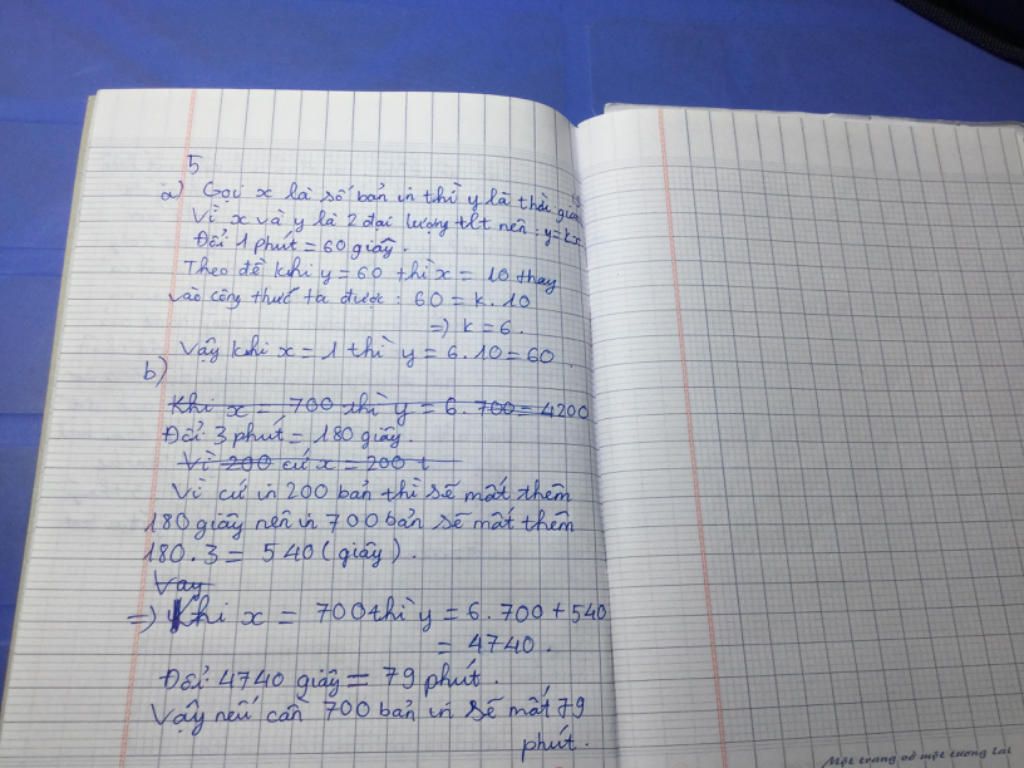 5
a) Gọi x là số bản in thì y là thời gian
Vì x và y là 2 đại lượng tlt nên : y=kx
Đổi 1 phút = 60 giây.
Theo đề khi y = 60 thì x = 10 thay
vào công thức ta được : 60 = k . 10
=> k = 6.
Vậy khi x = 1 thì y = 6.10 = 60.
b)
Khi x = 700 thì y = 6.700 = 4200
Đổi 3 phút = 180 giây.
Vì 200 cứ x = 200 t
Vì cứ in 200 bản thì sẽ mất thêm
180 giây nên in 700 bản sẽ mất thêm
180.3 = 540 (giây).
Vay
=> Khi x = 700 thì y = 6.700 + 540
= 4740.
Đổi 4740 giây = 79 phút.
Vậy nếu cần 700 bản in sẽ mất 79
phút.
Một trang vở một tương lai